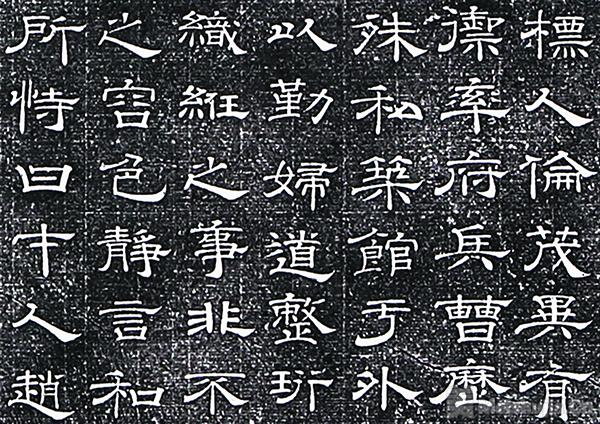 標人倫茂異有
禦率府兵曹歷
殊私築館于外
以勤婦道整珩
織紝之事非不
之容色靜言和
所恃曰才人趙